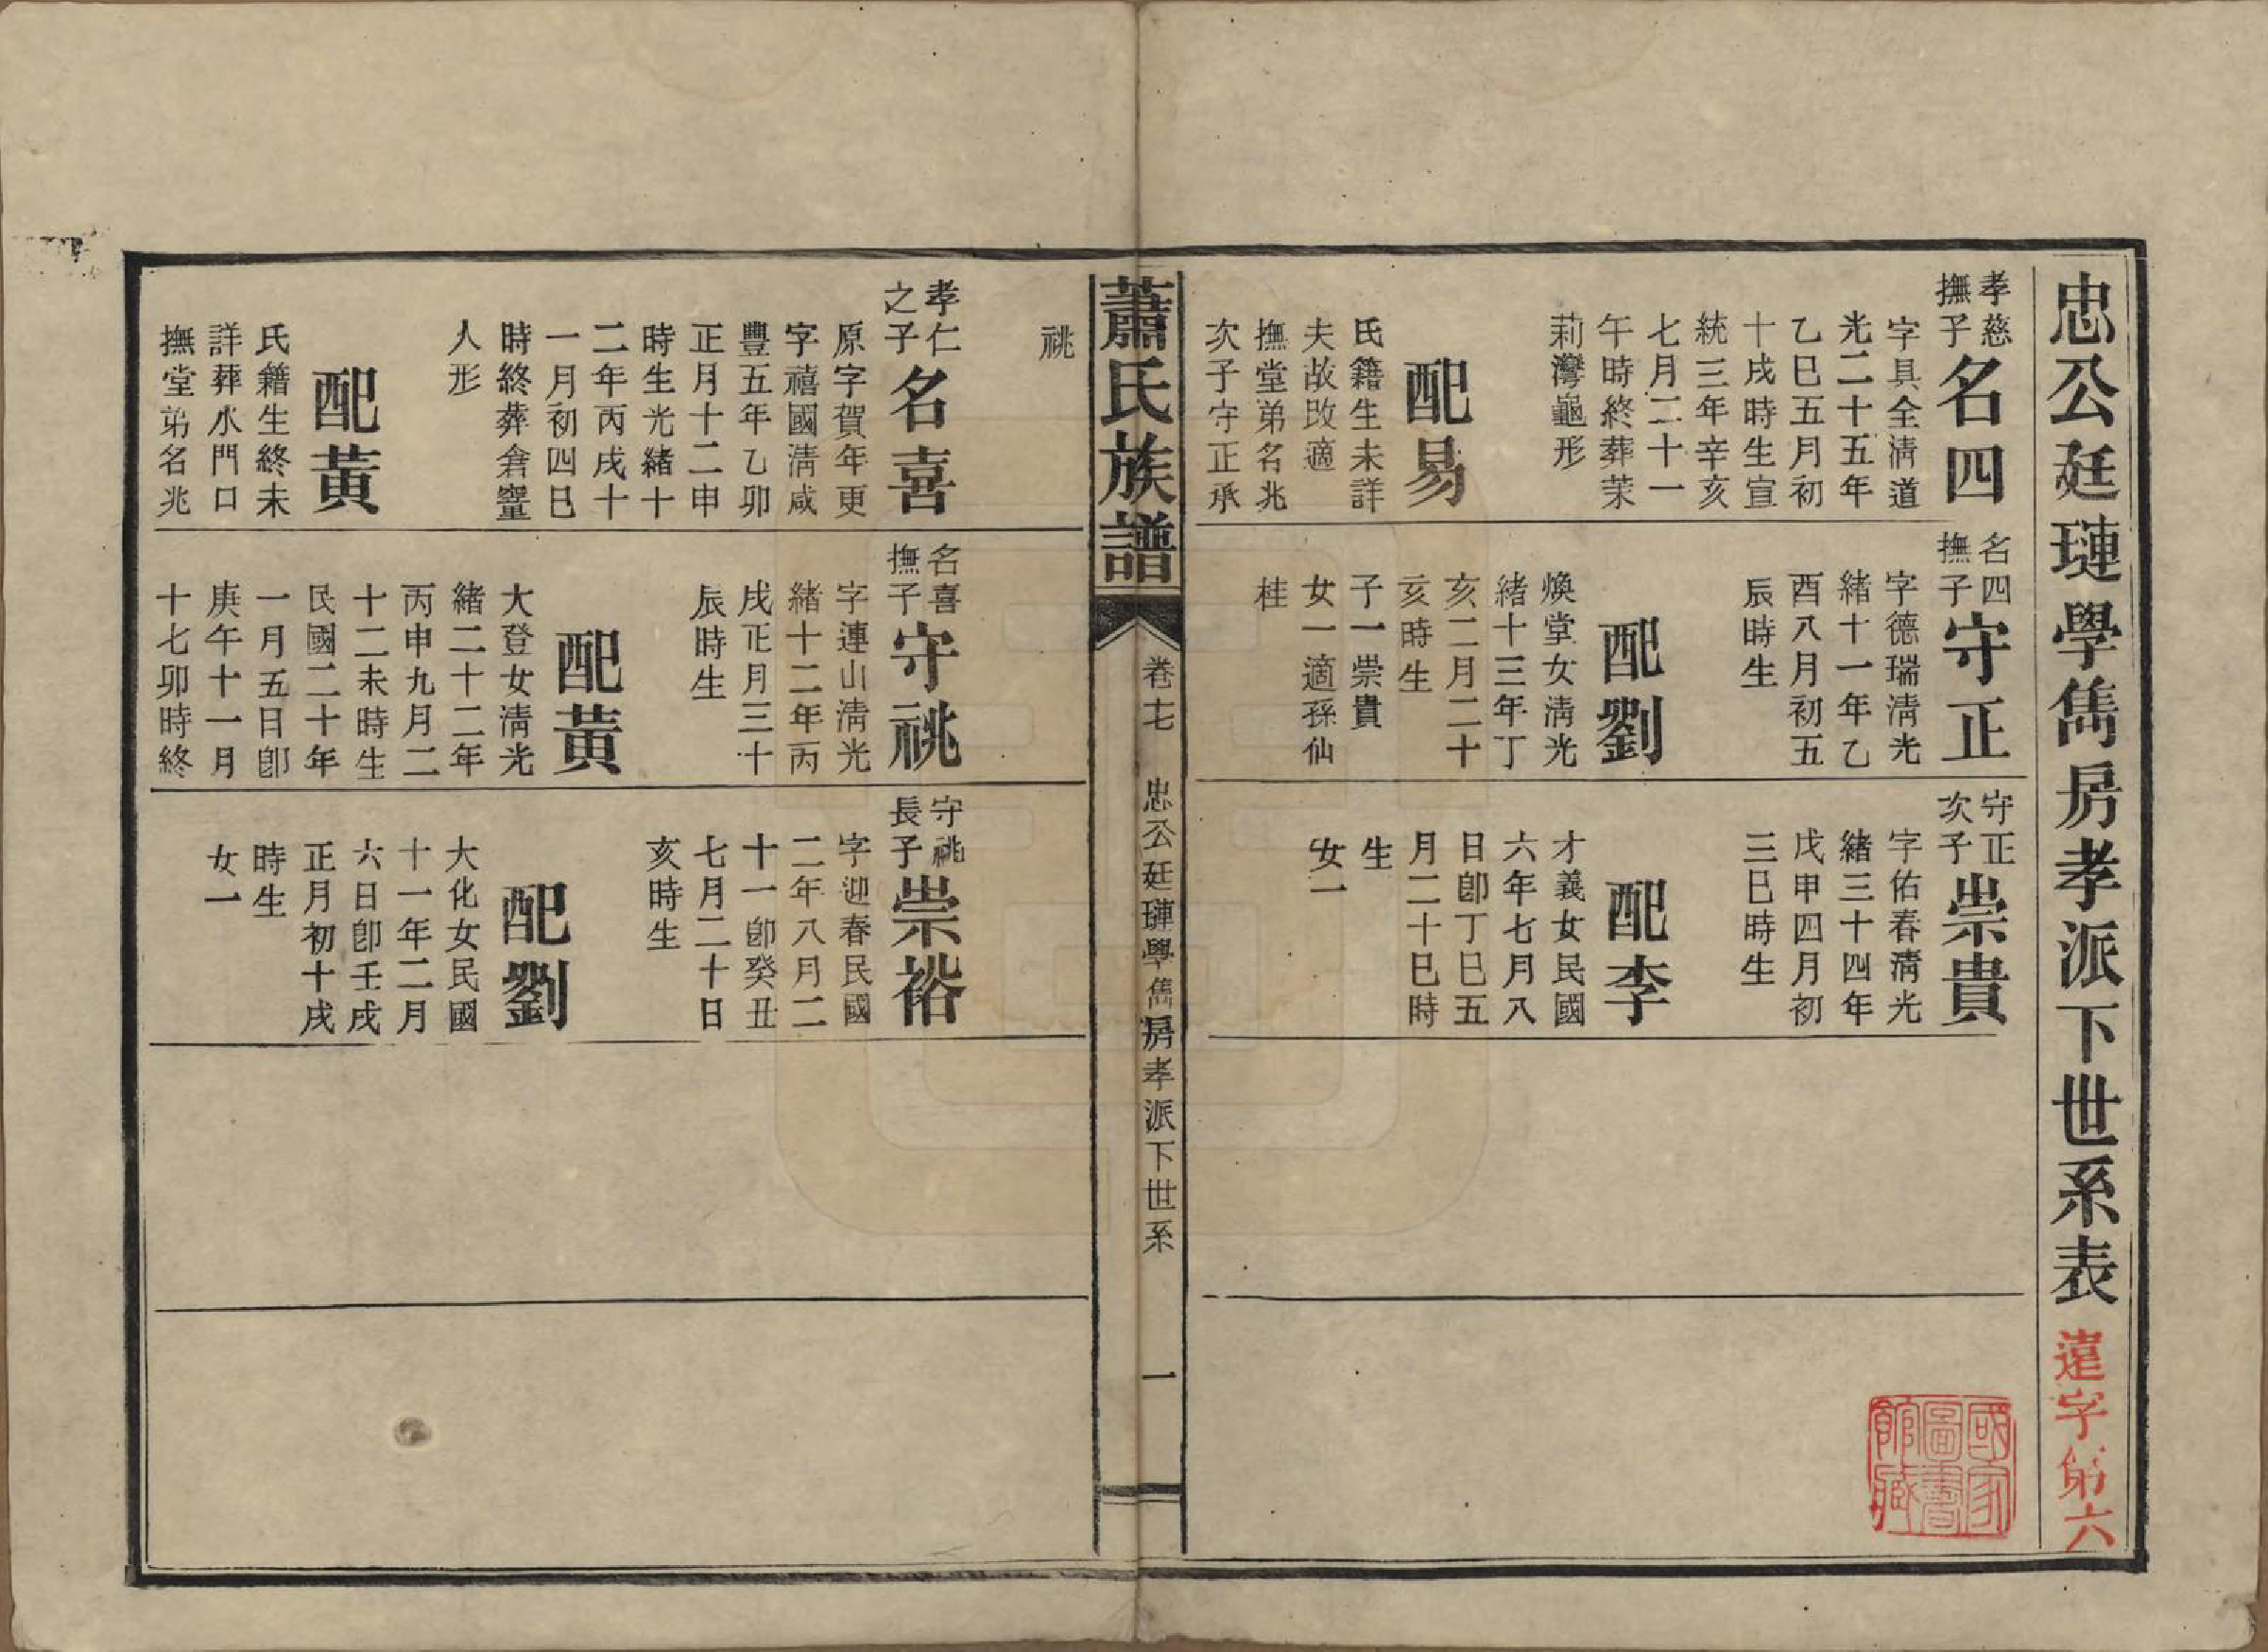 忠公廷璉學雋房孝派下世系表
遠字第六
國家圖書館藏
孝慈
撫子
名四
字具全淸道
光二十五年
乙巳五月初
十戌時生宣
統三年辛亥
七月二十一
午時終葬茉
莉灣龜形
配易
氏籍生未詳
夫故改適
撫堂弟名兆
次子守正承
祧
名四
撫子
守正
字德瑞淸光
緒十一年乙
酉八月初五
辰時生
配劉
煥堂女淸光
緒十三年丁
亥二月二十
亥時生
子一崇貴
女一適孫仙
桂
守正
次子
崇貴
字佑春淸光
緒三十四年
戊申四月初
三巳時生
配李
才義女民國
六年七月八
日卽丁巳五
月二十巳時
生
女一
蕭氏族譜
卷十七
忠公廷璉學雋房孝派下世系
一
孝仁
之子
名喜
原字賀年更
字禧國淸咸
豐五年乙卯
正月十二申
時生光緒十
二年丙戌十
一月初四巳
時終葬倉窰
人形
配黃
氏籍生終未
詳葬水門口
撫堂弟名兆
名喜
撫子
守祧
字連山淸光
緒十二年丙
戌正月三十
辰時生
配黃
大登女淸光
緒二十二年
丙申九月二
十二未時生
民國二十年
一月五日卽
庚午十一月
十七卯時終
守祧
長子
崇裕
字迎春民國
二年八月二
十一卽癸丑
七月二十日
亥時生
配劉
大化女民國
十一年二月
六日卽壬戌
正月初十戌
時生
女一